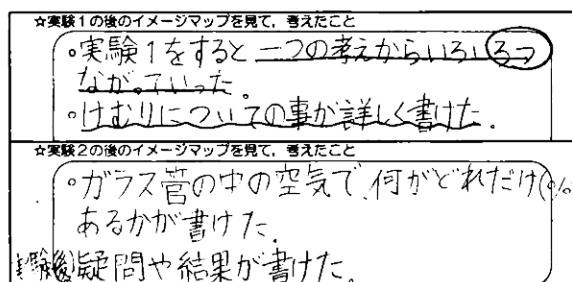 ☆実験1の後のイメージマップを見て，考えたこと
○実験1をすると一つの考えからいろいろつ
ながっていった。
○けむりについての事が詳しく書けた。
☆実験2の後のイメージマップを見て，考えたこと
○ガラス菅の中の空気で、何がどれだけ(%
あるかが書けた。
実験後疑問や結果が書けた。